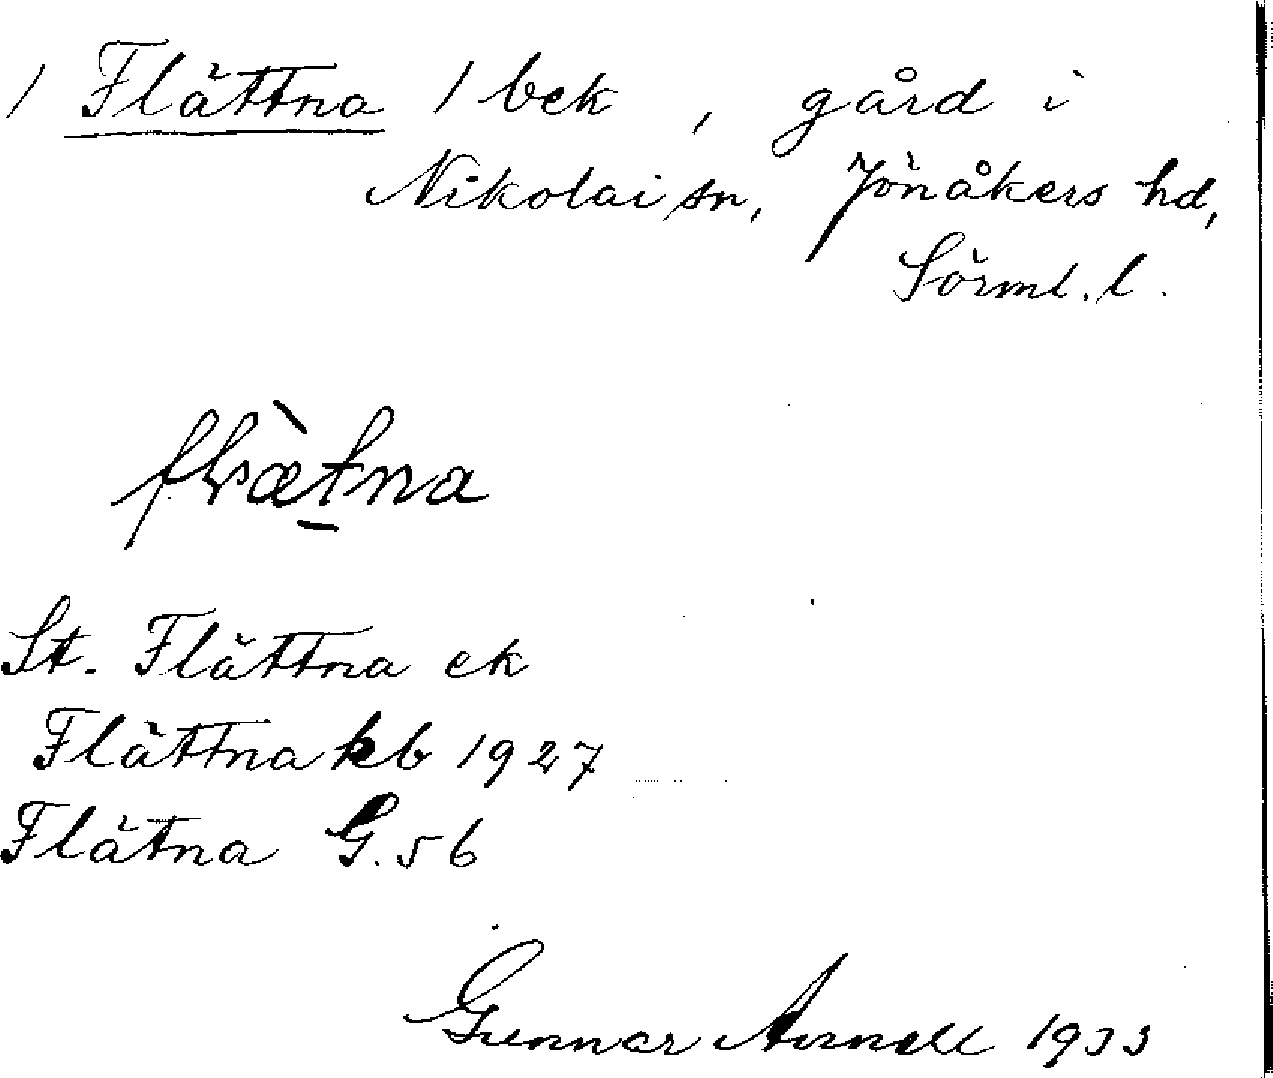 / Flättna / bek , gård i
Nikolai sn, Jönåkers hd,
Sörml. l.
flæ̀tna
St. Flättna ek
Flättna kb 1927
Flätna G. 56
Gunnar Arnell 1933